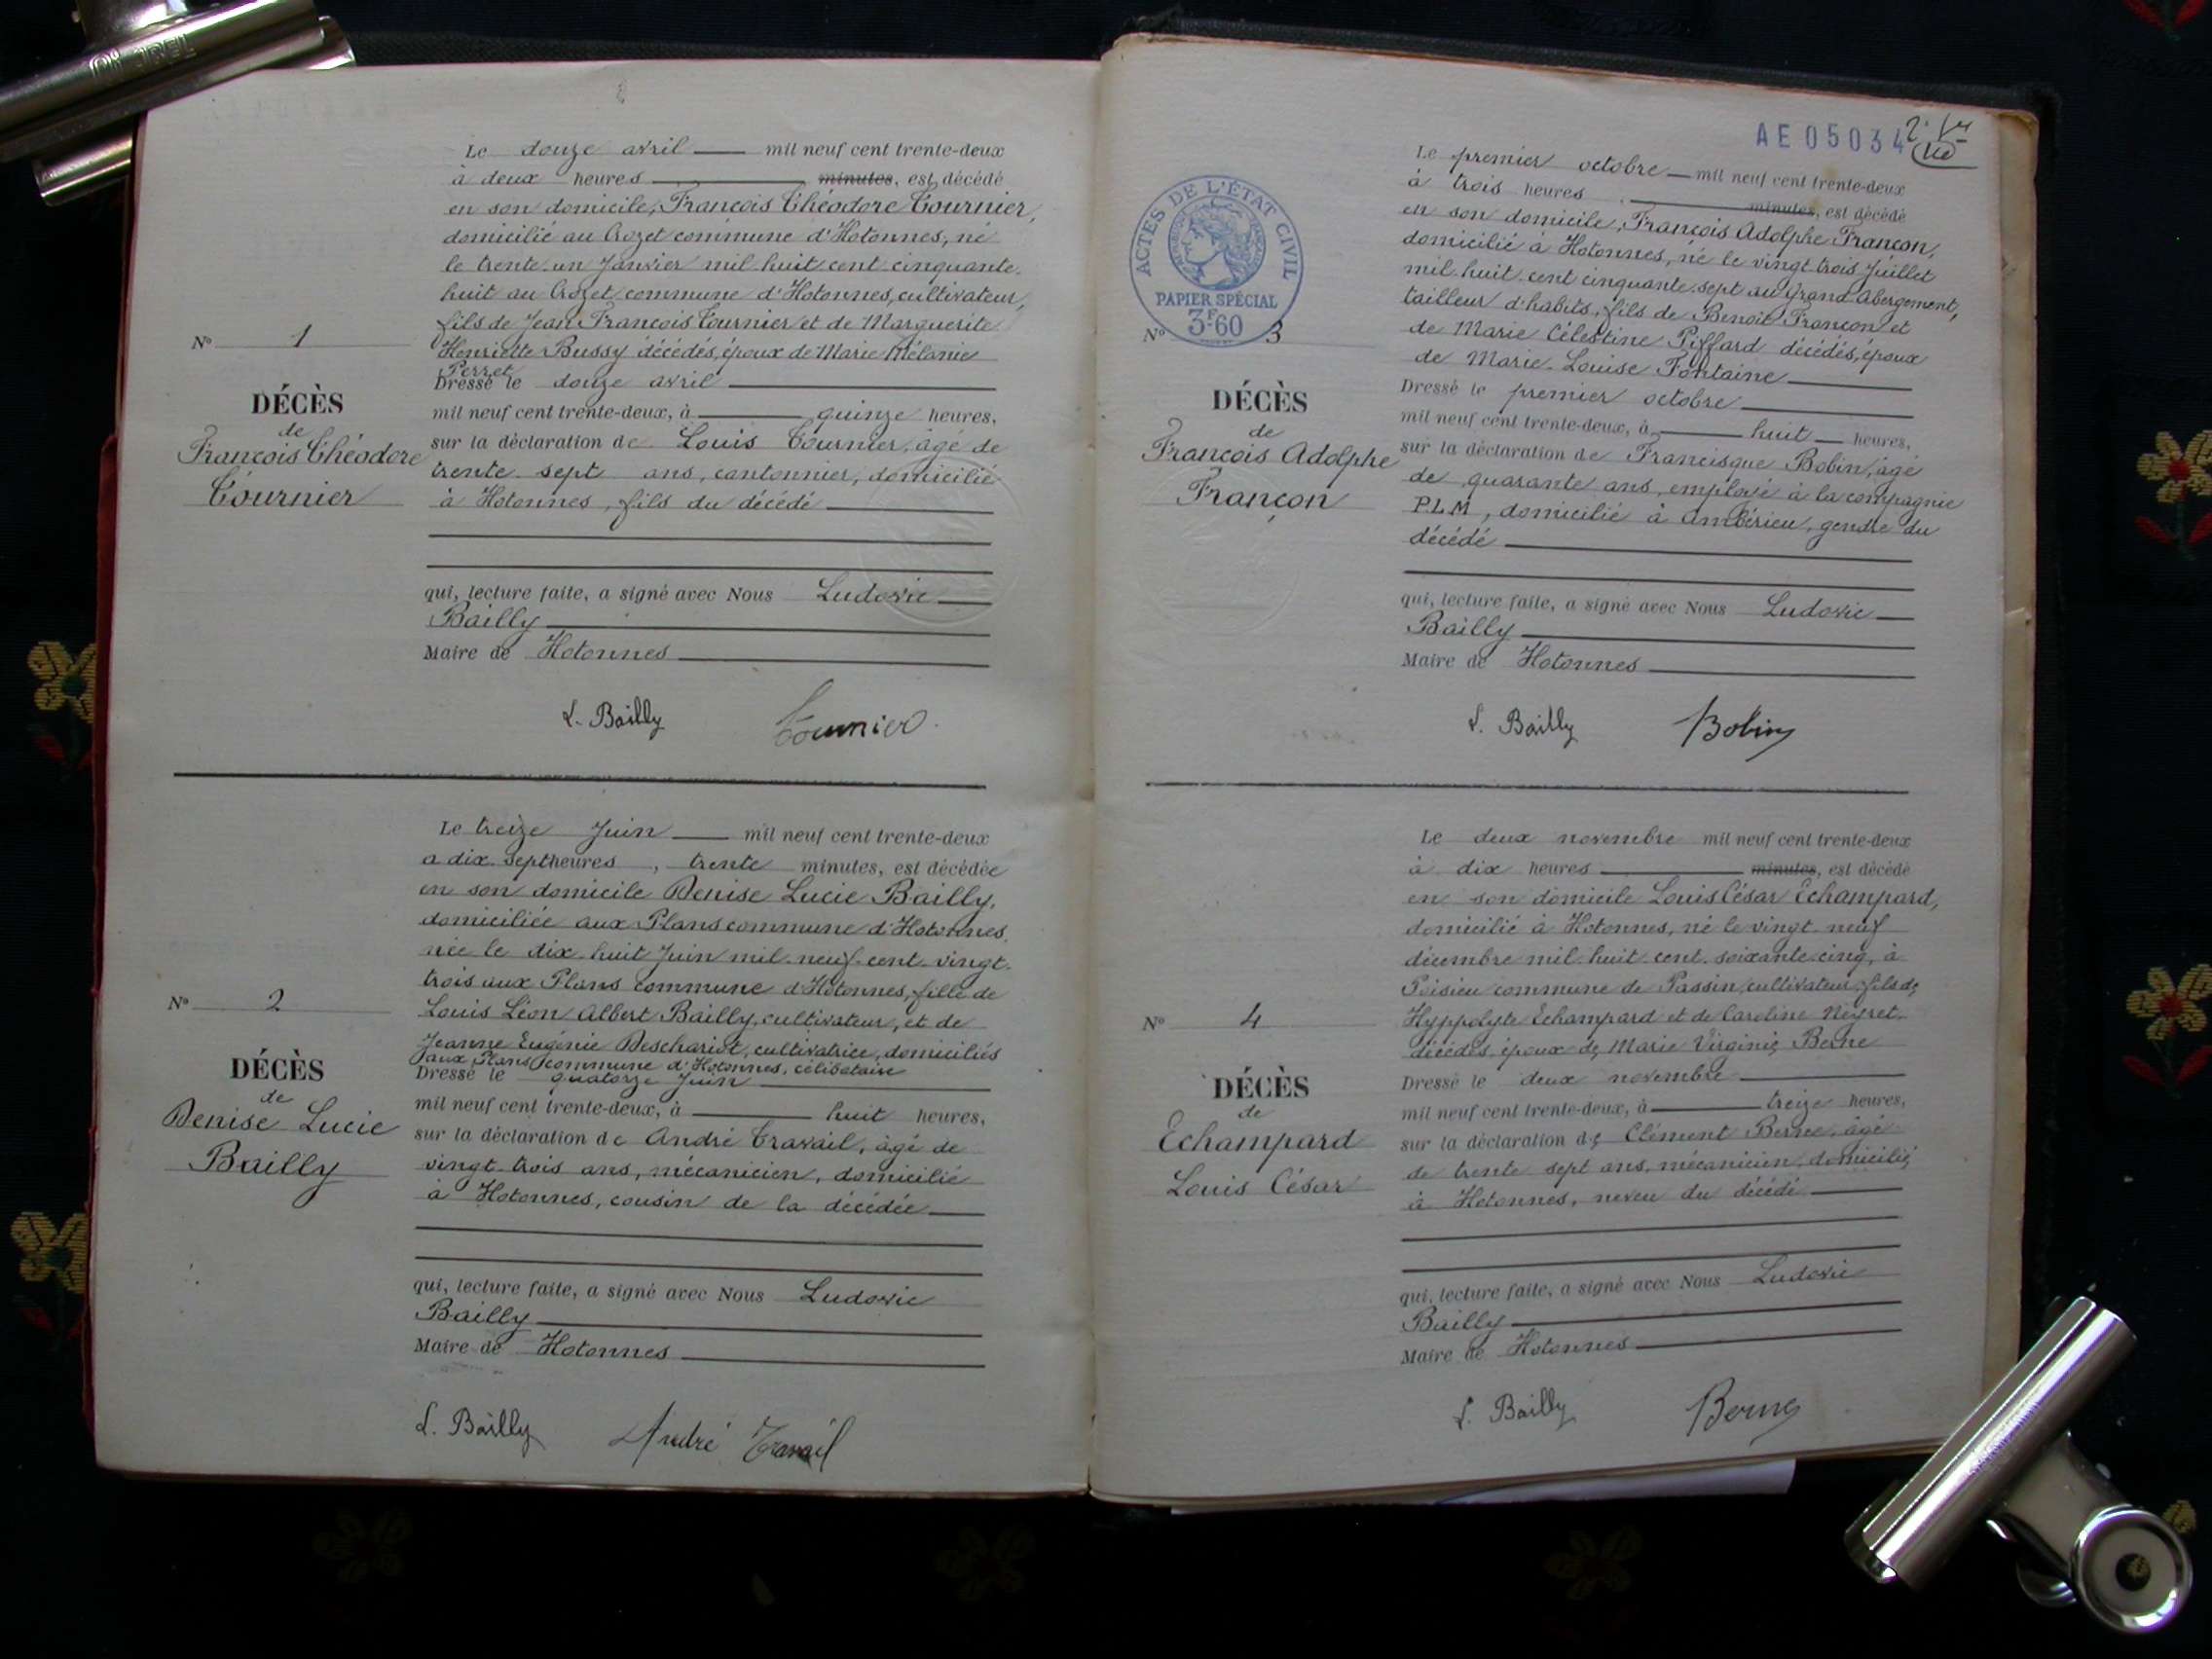 Le douze avril mil neuf cent trente-deux
à deux heures minutes, est décédé
en son domicile, François Théodore Tournier,
domicilié au Crozet commune d'Hotonnes, né
le trente-un Janvier mil huit cent cinquante-
huit au Crozet commune d'Hotonnes, cultivateur,
fils de Jean François Tournier et de Marguerite
Henriette Bussy décédés, époux de Marie Mélanie
Perret
Dressé le douze avril
mil neuf cent trente-deux, à quinze heures,
sur la déclaration de Louis Tournier, âgé de
trente sept ans, cantonnier, domicilié
à Hotonnes, fils du décédé
qui, lecture faite, a signé avec Nous Ludovic
Bailly
Maire de Hotonnes
L. Bailly Tournier
Nº 1
DÉCÈS
de
François Théodore
Tournier
Le treize Juin mil neuf cent trente-deux
à dix sept heures, trente minutes, est décédée
en son domicile Denise Lucie Bailly,
domiciliée aux Plans commune d'Hotonnes,
née le dix-huit Juin mil-neuf-cent-vingt-
trois aux Plans commune d'Hotonnes, fille de
Louis Léon Albert Bailly, cultivateur, et de
Jeanne Eugénie Deschariot, cultivatrice, domiciliés
aux Plans commune d'Hotonnes, célibataire
Dressé le quatorze Juin
mil neuf cent trente-deux, à huit heures,
sur la déclaration de André Travail, âgé de
vingt-trois ans, mécanicien, domicilié
à Hotonnes, cousin de la décédée
qui, lecture faite, a signé avec Nous Ludovic
Bailly
Maire de Hotonnes
L. Bailly André Travail
Nº 2
DÉCÈS
de
Denise Lucie
Bailly
AE05034
ACTES DE L'ÉTAT CIVIL
PAPIER SPÉCIAL
3F60
Le premier octobre mil neuf cent trente-deux
à trois heures minutes, est décédé
en son domicile, François Adolphe Françon,
domicilié à Hotonnes, né le vingt-trois Juillet
mil-huit-cent cinquante-sept au Grand-Abergement,
tailleur d'habits, fils de Benoît Françon et
de Marie Célestine Piffard décédés, époux
de Marie-Louise Fontaine
Dressé le premier octobre
mil neuf cent trente-deux, à huit heures,
sur la déclaration de Francisque Bobin, âgé
de quarante ans, employé à la compagnie
P.L.M, domicilié à Ambérieu, gendre du
décédé
qui, lecture faite, a signé avec Nous Ludovic
Bailly
Maire de Hotonnes
L. Bailly Bobin
Nº 3
DÉCÈS
de
François Adolphe
Françon
Le deux novembre mil neuf cent trente-deux
à dix heures minutes, est décédé
en son domicile Louis César Echampard,
domicilié à Hotonnes, né le vingt-neuf
décembre mil-huit cent-soixante-cinq, à
Poisieu commune de Passin, cultivateur, fils de
Hyppolyte Echampard et de Caroline Neyret
décédés, époux de Marie Virginie Berne
Dressé le deux novembre
mil neuf cent trente-deux, à treize heures,
sur la déclaration de Clément Berne, âgé
de trente sept ans, mécanicien, domicilié
à Hotonnes, neveu du décédé
qui, lecture faite, a signé avec Nous Ludovic
Bailly
Maire de Hotonnes
L. Bailly Berne
Nº 4
DÉCÈS
de
Echampard
Louis César